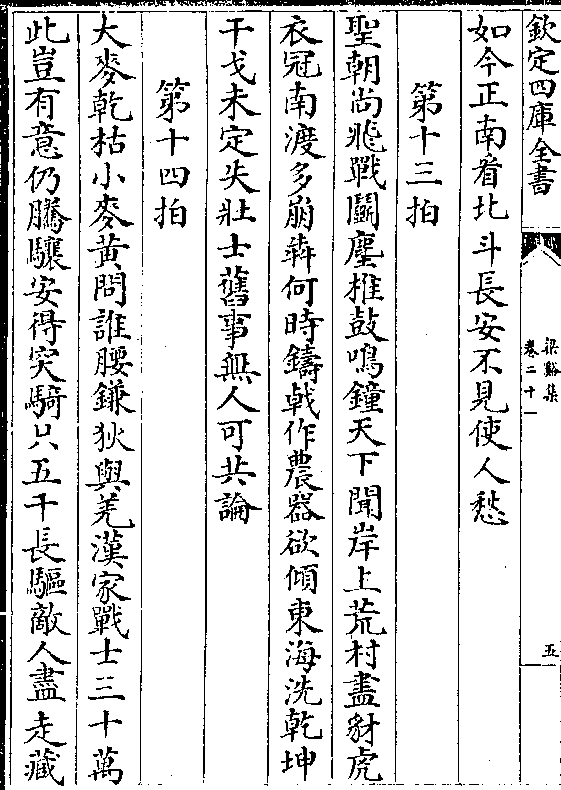 欽定四庫全書
梁谿集
卷二十一
五
如今正南看北斗長安不見使人愁
第十三拍
聖朝尚飛戰鬭塵椎鼓鳴鐘天下聞岸上荒村盡豺虎
衣冠南渡多崩犇何時鑄㦸作農器欲傾東海洗乾坤
干戈未定失壯士舊事無人可共論
第十四拍
大麥乾枯小麥黃問誰腰鎌狄與羌漢家戰士三十萬
此豈有意仍騰驤安得突騎只五千長驅敵人盡走藏